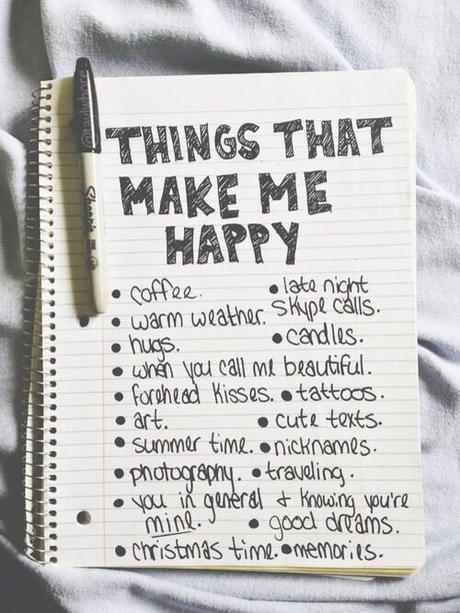 THINGS THAT
MAKE ME
HAPPY
• coffee.
• late night
skype calls.
• warm weather.
• hugs.
• candles.
• when you call me beautiful.
• forehead kisses. • tattoos.
• art. • cute texts.
• summer time. • nicknames.
• photography. • traveling.
• you in general & knowing you're
mine. • good dreams.
• christmas time. • memories.
Sharpie